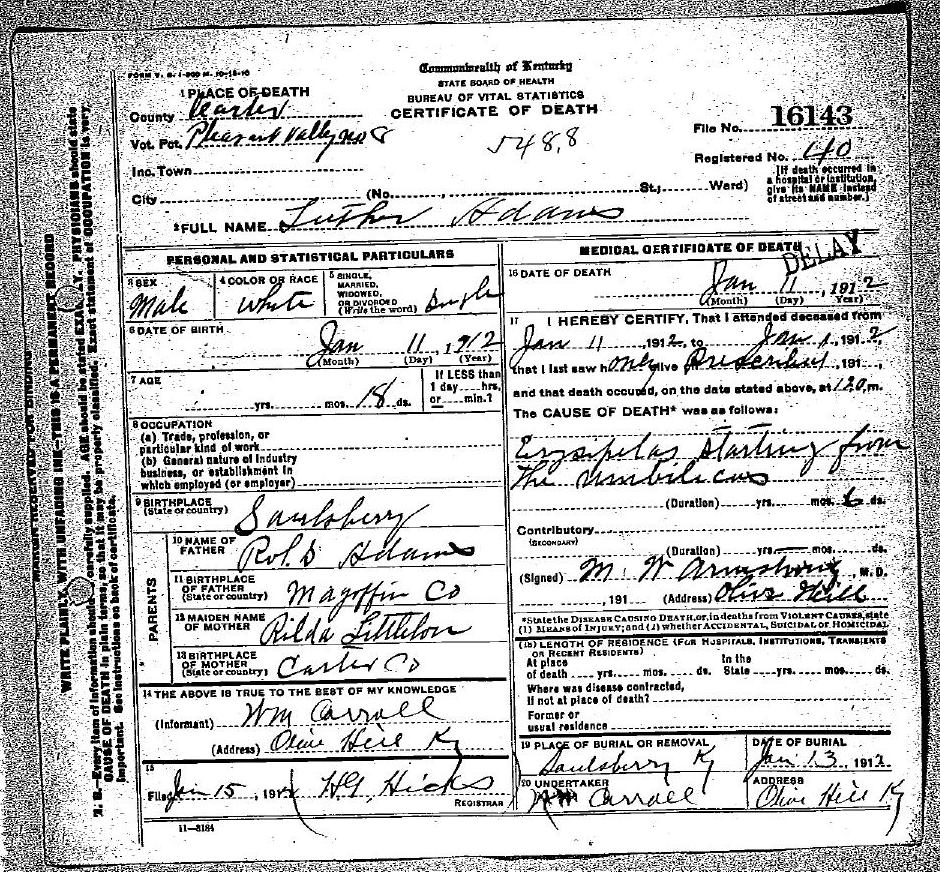 FORM V. S. 1-200 M. 10-18-10
Commonwealth of Kentucky
STATE BOARD OF HEALTH
BUREAU OF VITAL STATISTICS
CERTIFICATE OF DEATH
1 PLACE OF DEATH
County Carter
Vot. Pct. Pleasant Valley no 8
5488
File No. 16143
Registered No. 40
Inc. Town
[If death occurred in a hospital or institution, give its NAME instead of street and number.]
City (No. , St.; Ward)
2 FULL NAME Luther Adams
PERSONAL AND STATISTICAL PARTICULARS
3 SEX Male
4 COLOR OR RACE White
5 SINGLE, MARRIED, WIDOWED, OR DIVORCED (Write the word) Single
6 DATE OF BIRTH
Jan 11, 1912
(Month) (Day) (Year)
7 AGE
yrs. mos. 18 ds.
If LESS than 1 day hrs. or min.?
8 OCCUPATION
(a) Trade, profession, or
particular kind of work
(b) General nature of Industry
business, or establishment in
which employed (or employer)
9 BIRTHPLACE
(State or country) Saulsberry
PARENTS
10 NAME OF FATHER Rob. S Adams
11 BIRTHPLACE OF FATHER (State or country) Magoffin Co
12 MAIDEN NAME OF MOTHER Rilda Littleton
13 BIRTHPLACE OF MOTHER (State or country) Carter Co
14 THE ABOVE IS TRUE TO THE BEST OF MY KNOWLEDGE
(Informant) Wm Carroll
(Address) Olive Hill Ky
15
Filed Jan 15, 1912 H.G. Hicks
REGISTRAR
11-3184
MEDICAL CERTIFICATE OF DEATH
DELAY
16 DATE OF DEATH
Jan 11, 1912
(Month) (Day) (Year)
17 I HEREBY CERTIFY, That I attended deceased from
Jan 11, 1912 to Jan 1, 1912
that I last saw h only alive Prescribed, 191
and that death occured, on the date stated above, at 120 m.
The CAUSE OF DEATH* was as follows:
Erysipelas starting from
the umbilicus
(Duration) yrs. mos. 6 ds.
Contributory
(SECONDARY)
(Duration) yrs. mos. ds.
(Signed) M. W Armstrong, M. D.
, 191 (Address) Olive Hill
*State the DISEASE CAUSING DEATH, or, in deaths from VIOLENT CAUSES, state
(1) MEANS OF INJURY; and (2) whether ACCIDENTAL, SUICIDAL OR HOMICIDAL
(18) LENGTH OF RESIDENCE (FOR HOSPITALS, INSTITUTIONS, TRANSIENTS
OR RECENT RESIDENTS)
At place of death yrs. mos. ds. In the State yrs. mos. ds.
Where was disease contracted,
if not at place of death?
Former or
usual residence
19 PLACE OF BURIAL OR REMOVAL Saulsberry Ky
DATE OF BURIAL Jan 13, 1912
20 UNDERTAKER Wm Carroll
ADDRESS Olive Hill Ky
WRITE PLAINLY, WITH UNFADING INK—THIS IS A PERMANENT RECORD
N. B.—Every item of information should be carefully supplied. AGE should be stated EXACTLY. PHYSICIANS should state
CAUSE OF DEATH in plain terms, so that it may be properly classified. Exact statement of OCCUPATION is very
important. See instructions on back of certificate.